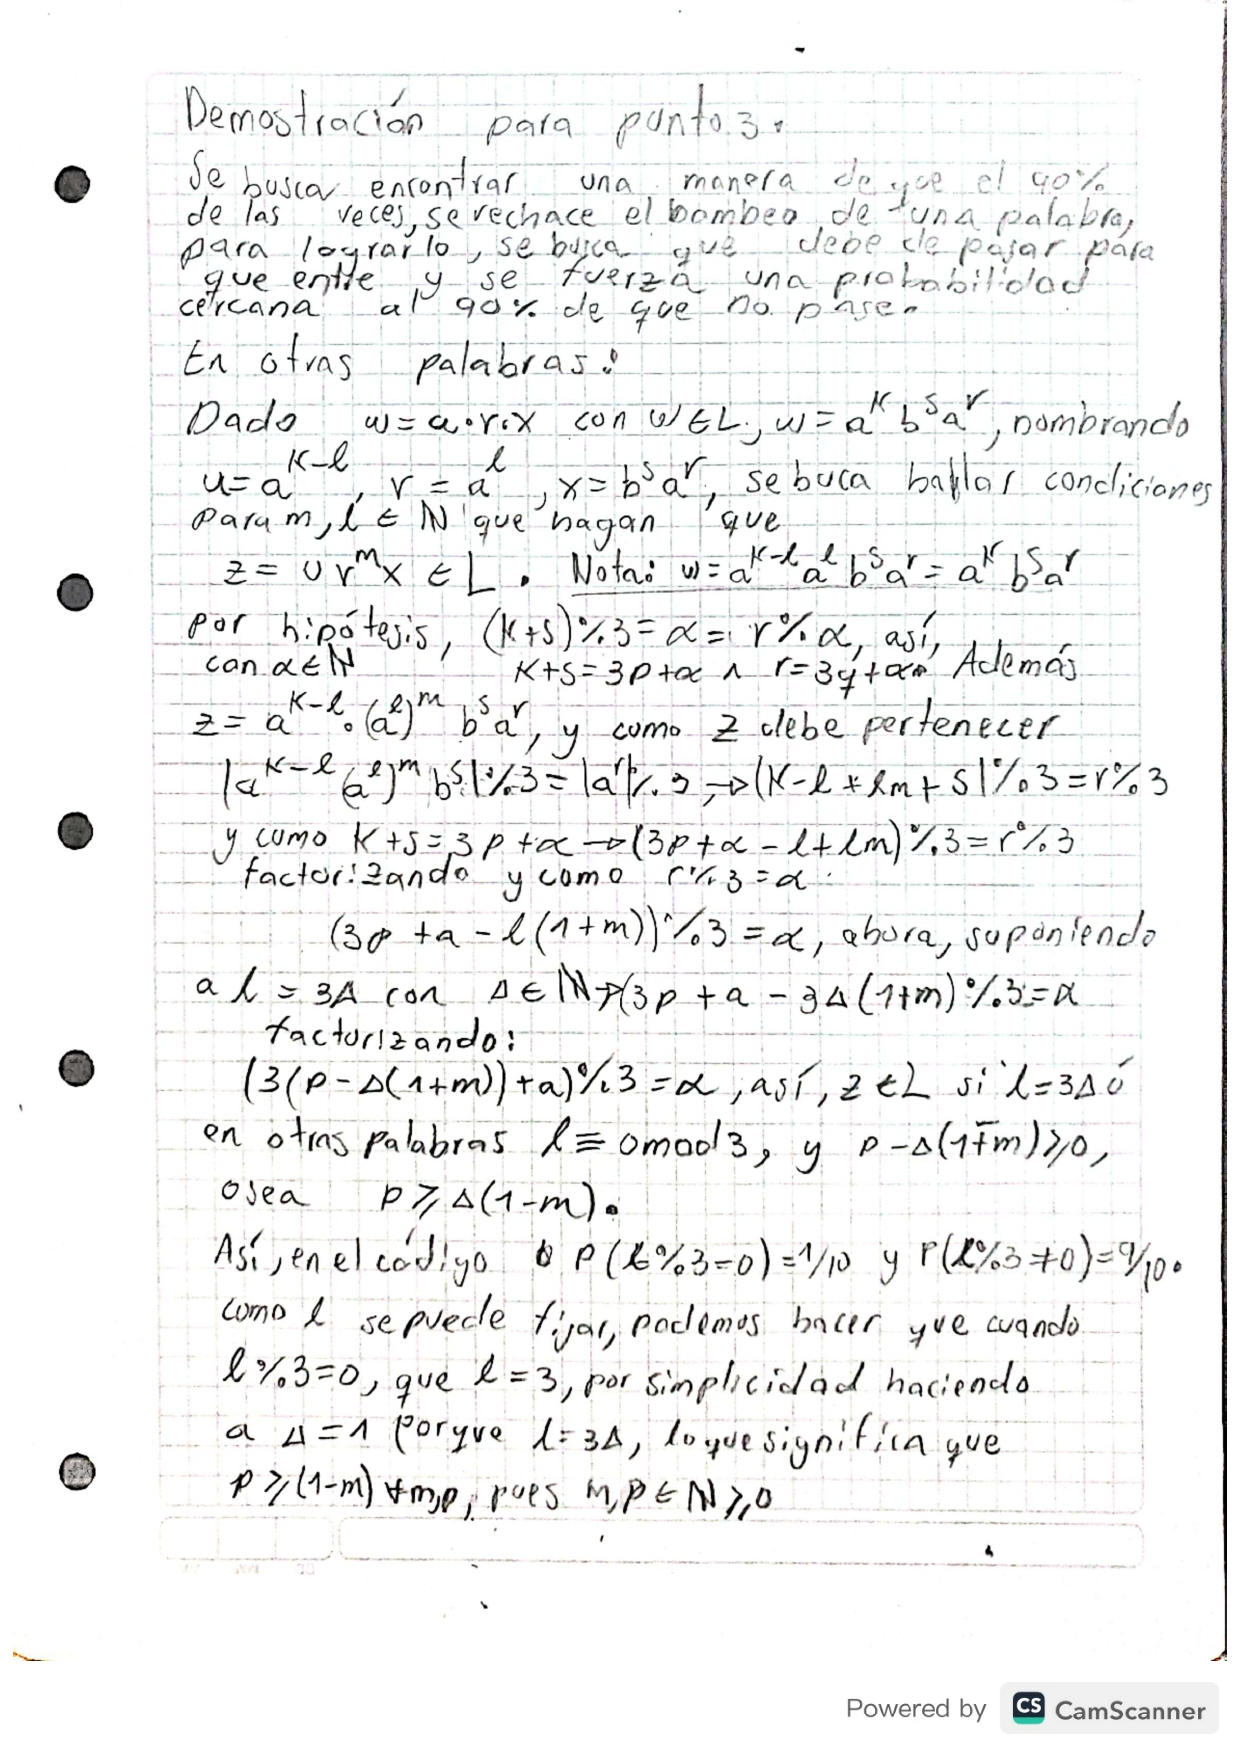 Demostración para punto 3.
Se busca encontrar una manera de que el 90%
de las veces, se rechace el bombeo de una palabra,
para lograrlo, se busca que debe de pasar para
que entre y se fuerza una probabilidad
cercana al 90% de que no pase.
En otras palabras:
Dado w = a·v·x con w∈L, w = a^k b^s a^r, nombrando
u = a^{k-l}, v = a^l, x = b^s a^r, se buca hallar condiciones
para m, l ∈ ℕ que hagan que
z = u v^m x ∈ L. Nota: w = a^{k-l} a^l b^s a^r = a^k b^s a^r
por hipótesis, (k+s)%3 = α = r%α, así,
con α∈ℕ k+s = 3p+α ∧ r = 3q+α. Además
z = a^{k-l}·(a^l)^m b^s a^r, y como z debe pertenecer
|a^{k-l} (a^l)^m b^s|%3 = |a^r|%3 → (k-l+lm+s)%3 = r%3
y como k+s = 3p+α → (3p+α-l+lm)%3 = r%3
factorizando y como r%3 = α
(3p+a-l(1+m))%3 = α, ahora, suponiendo
a l = 3Δ con Δ∈ℕ → (3p+a-3Δ(1+m)%3 = α
factorizando:
(3(p-Δ(1+m))+a)%3 = α, así, z∈L si l = 3Δ ó
en otras palabras l ≡ 0mod3, y p-Δ(1-m) ≥ 0,
osea p ≥ Δ(1-m).
Así, en el código P(l%3=0) = 1/10 y P(l%3≠0) = 9/10.
como l se puede fijar, podemos hacer que cuando
l%3=0, que l=3, por simplicidad haciendo
a Δ=1 porque l=3Δ, lo que significa que
p ≥ (1-m) ∀m,p, pues m,p ∈ ℕ ≥ 0
Powered by CS CamScanner